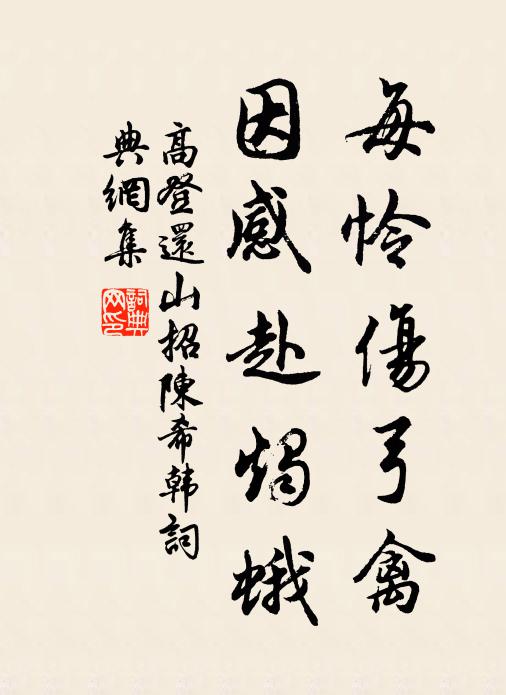 每怜傷弓禽
因感赴燭蛾
高登還山招陳希韩詞
典網集
詞典网印